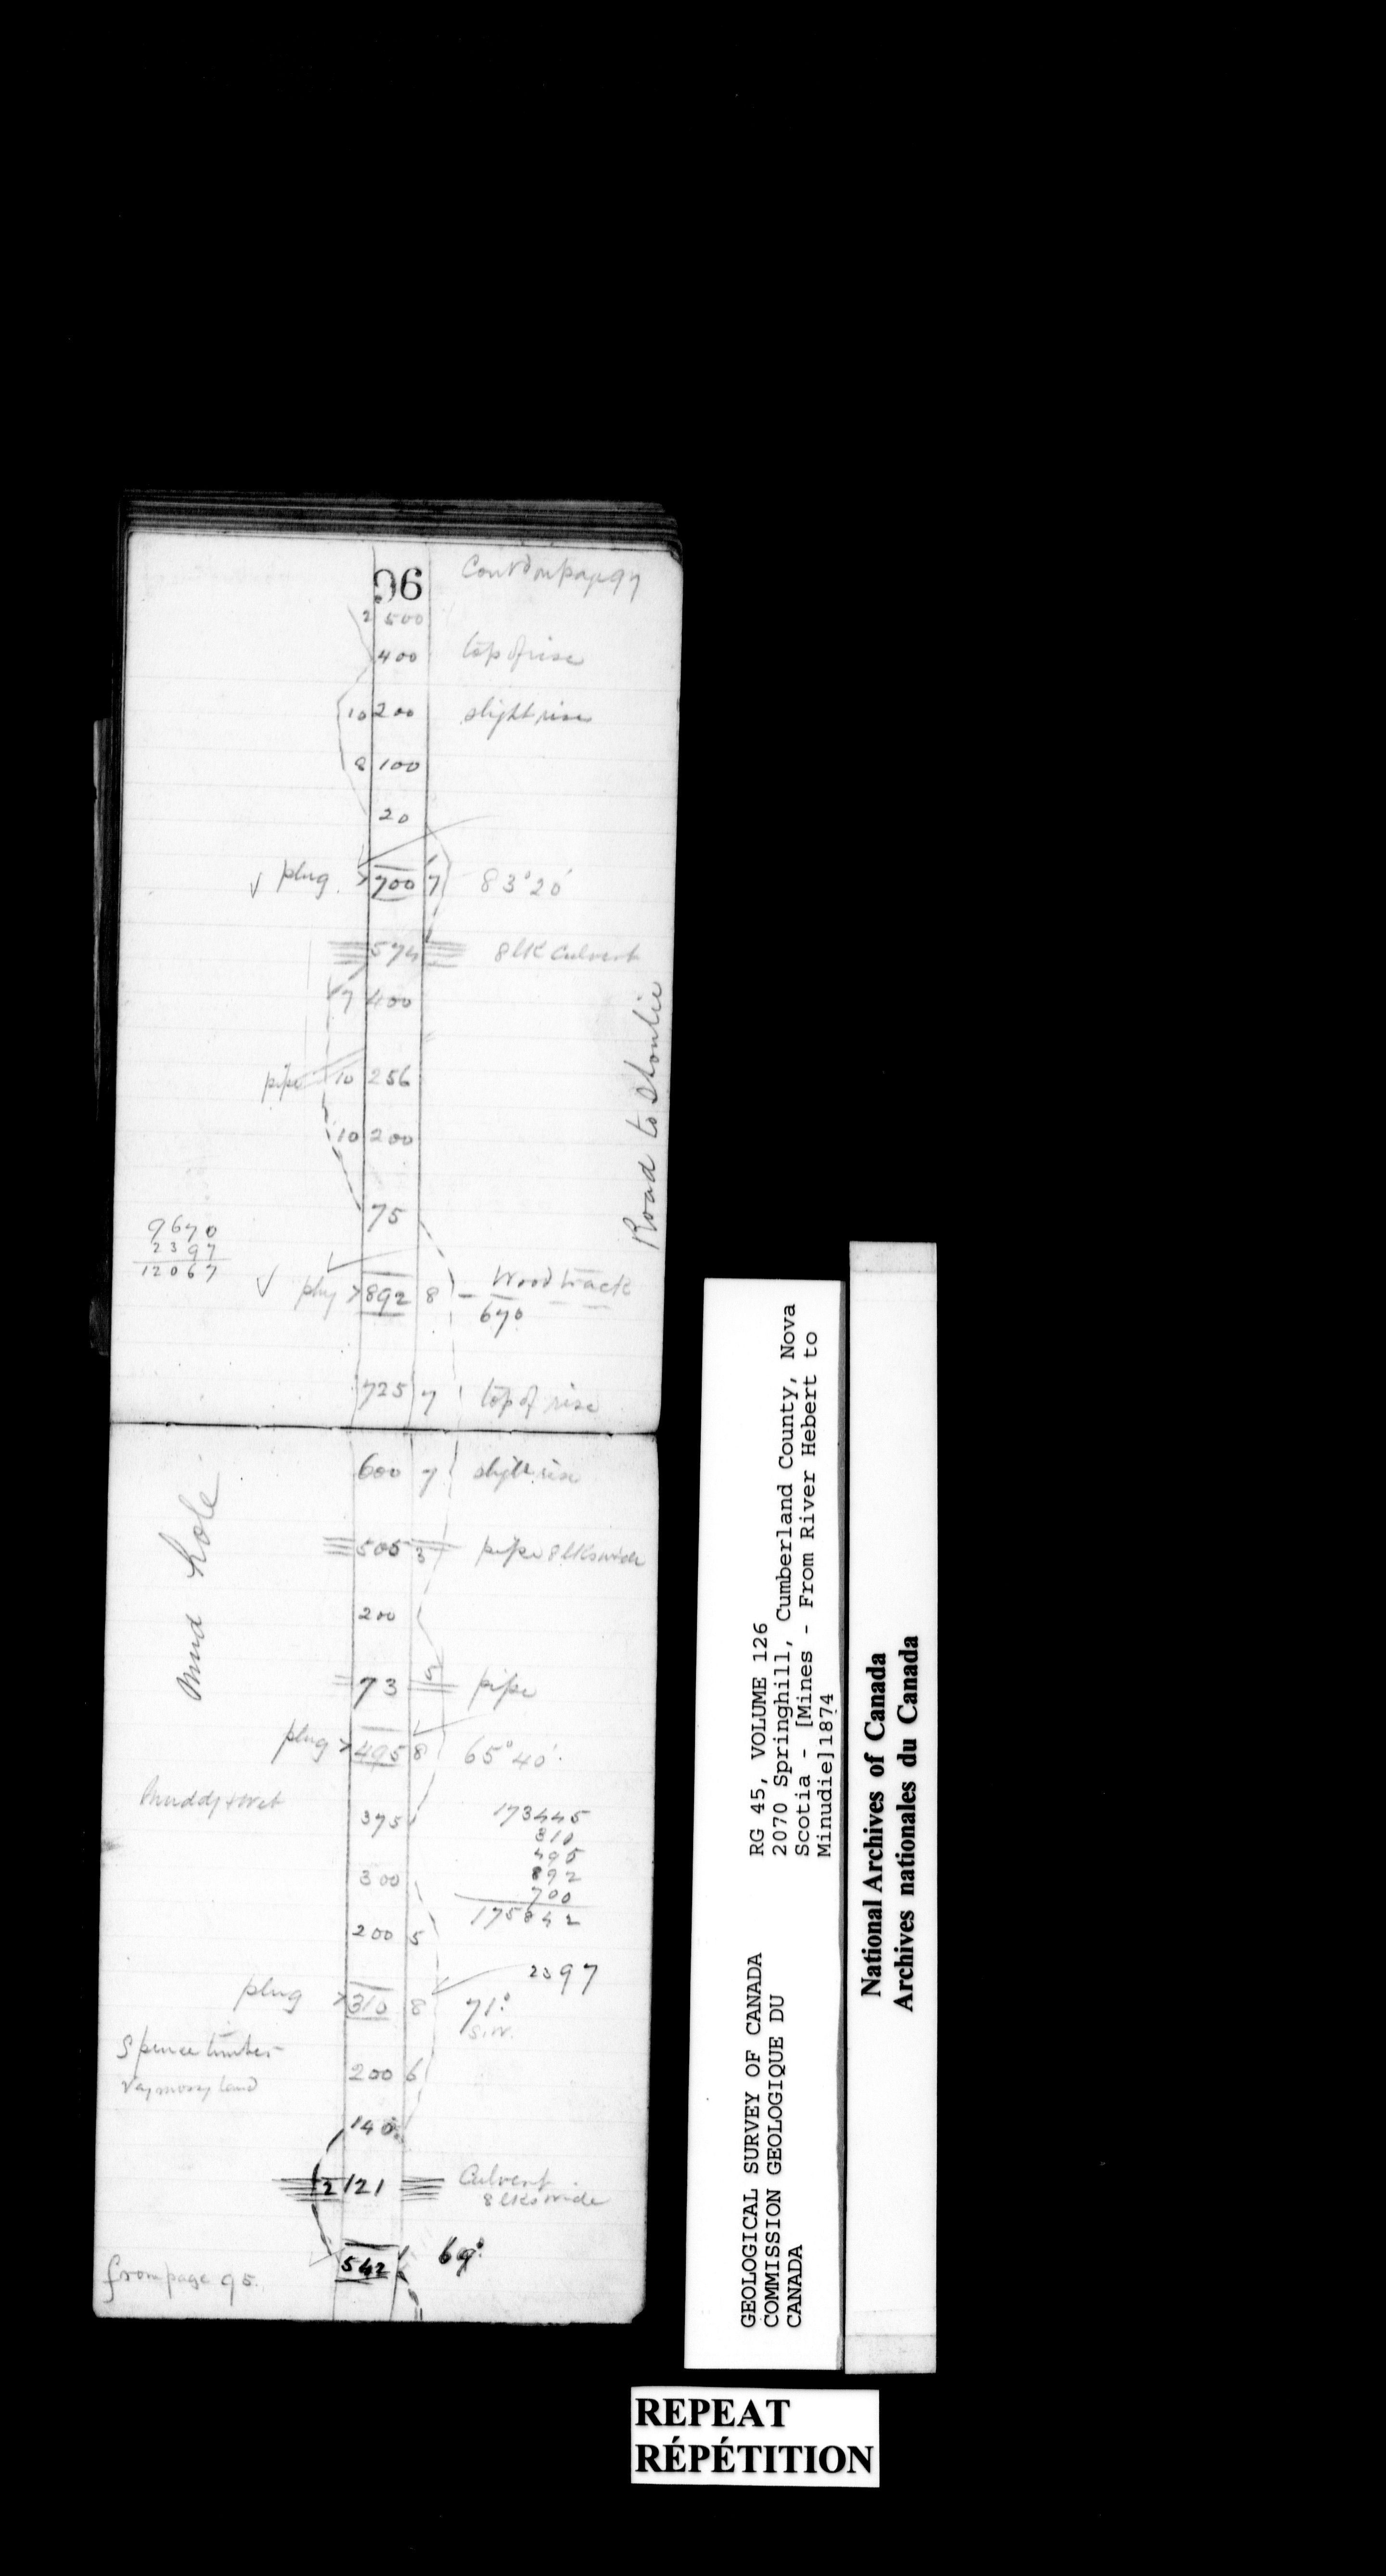 96 Cont'd on page 97
2 500
400 top of rise
10 200 slight rise
8 100
20
√ plug 700 7 83°20'
574 8 lk Culvert
7 400
pipe 10 256
10 200
75
Road to Shoulie
9670
2397
12067
√ plug 892 8 - Wood track
670
725 7 top of rise
600 7 slight rise
505 3 pipe 8 lks wide
Mud hole
200
73 5 pipe
plug 495 8 65°40'
Muddy & wet
375
173445
310
495
892
700
175842
300
200 5
2397
plug 310 8 71°
S.W.
Spruce timber
Very mossy land
200 6
140
12 121 Culvert
8 lks wide
542 69°
from page 95.
RG 45, VOLUME 126
2070 Springhill, Cumberland County, Nova
Scotia - [Mines - From River Hebert to
Minudie]1874
GEOLOGICAL SURVEY OF CANADA
COMMISSION GEOLOGIQUE DU
CANADA
National Archives of Canada
Archives nationales du Canada
REPEAT
RÉPÉTITION